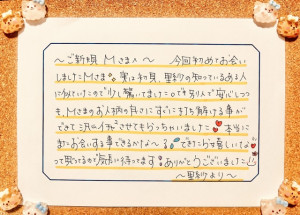 ～ご新規 Mさまへ～ 今回初めてお会い
しましたMさま 実は初見、里紗の知っているある人
に似ていたので少し驚いてましたね。でも別人で安心しつつ
も、Mさまのお人柄の良さにすぐに打ち解ける事が
できて させてもらっちゃいました 本当に
またお会いする事できるかな〜る できてたら嬉しいな
って思ってるので気長に待ってます ありがとうございました
～里紗より～